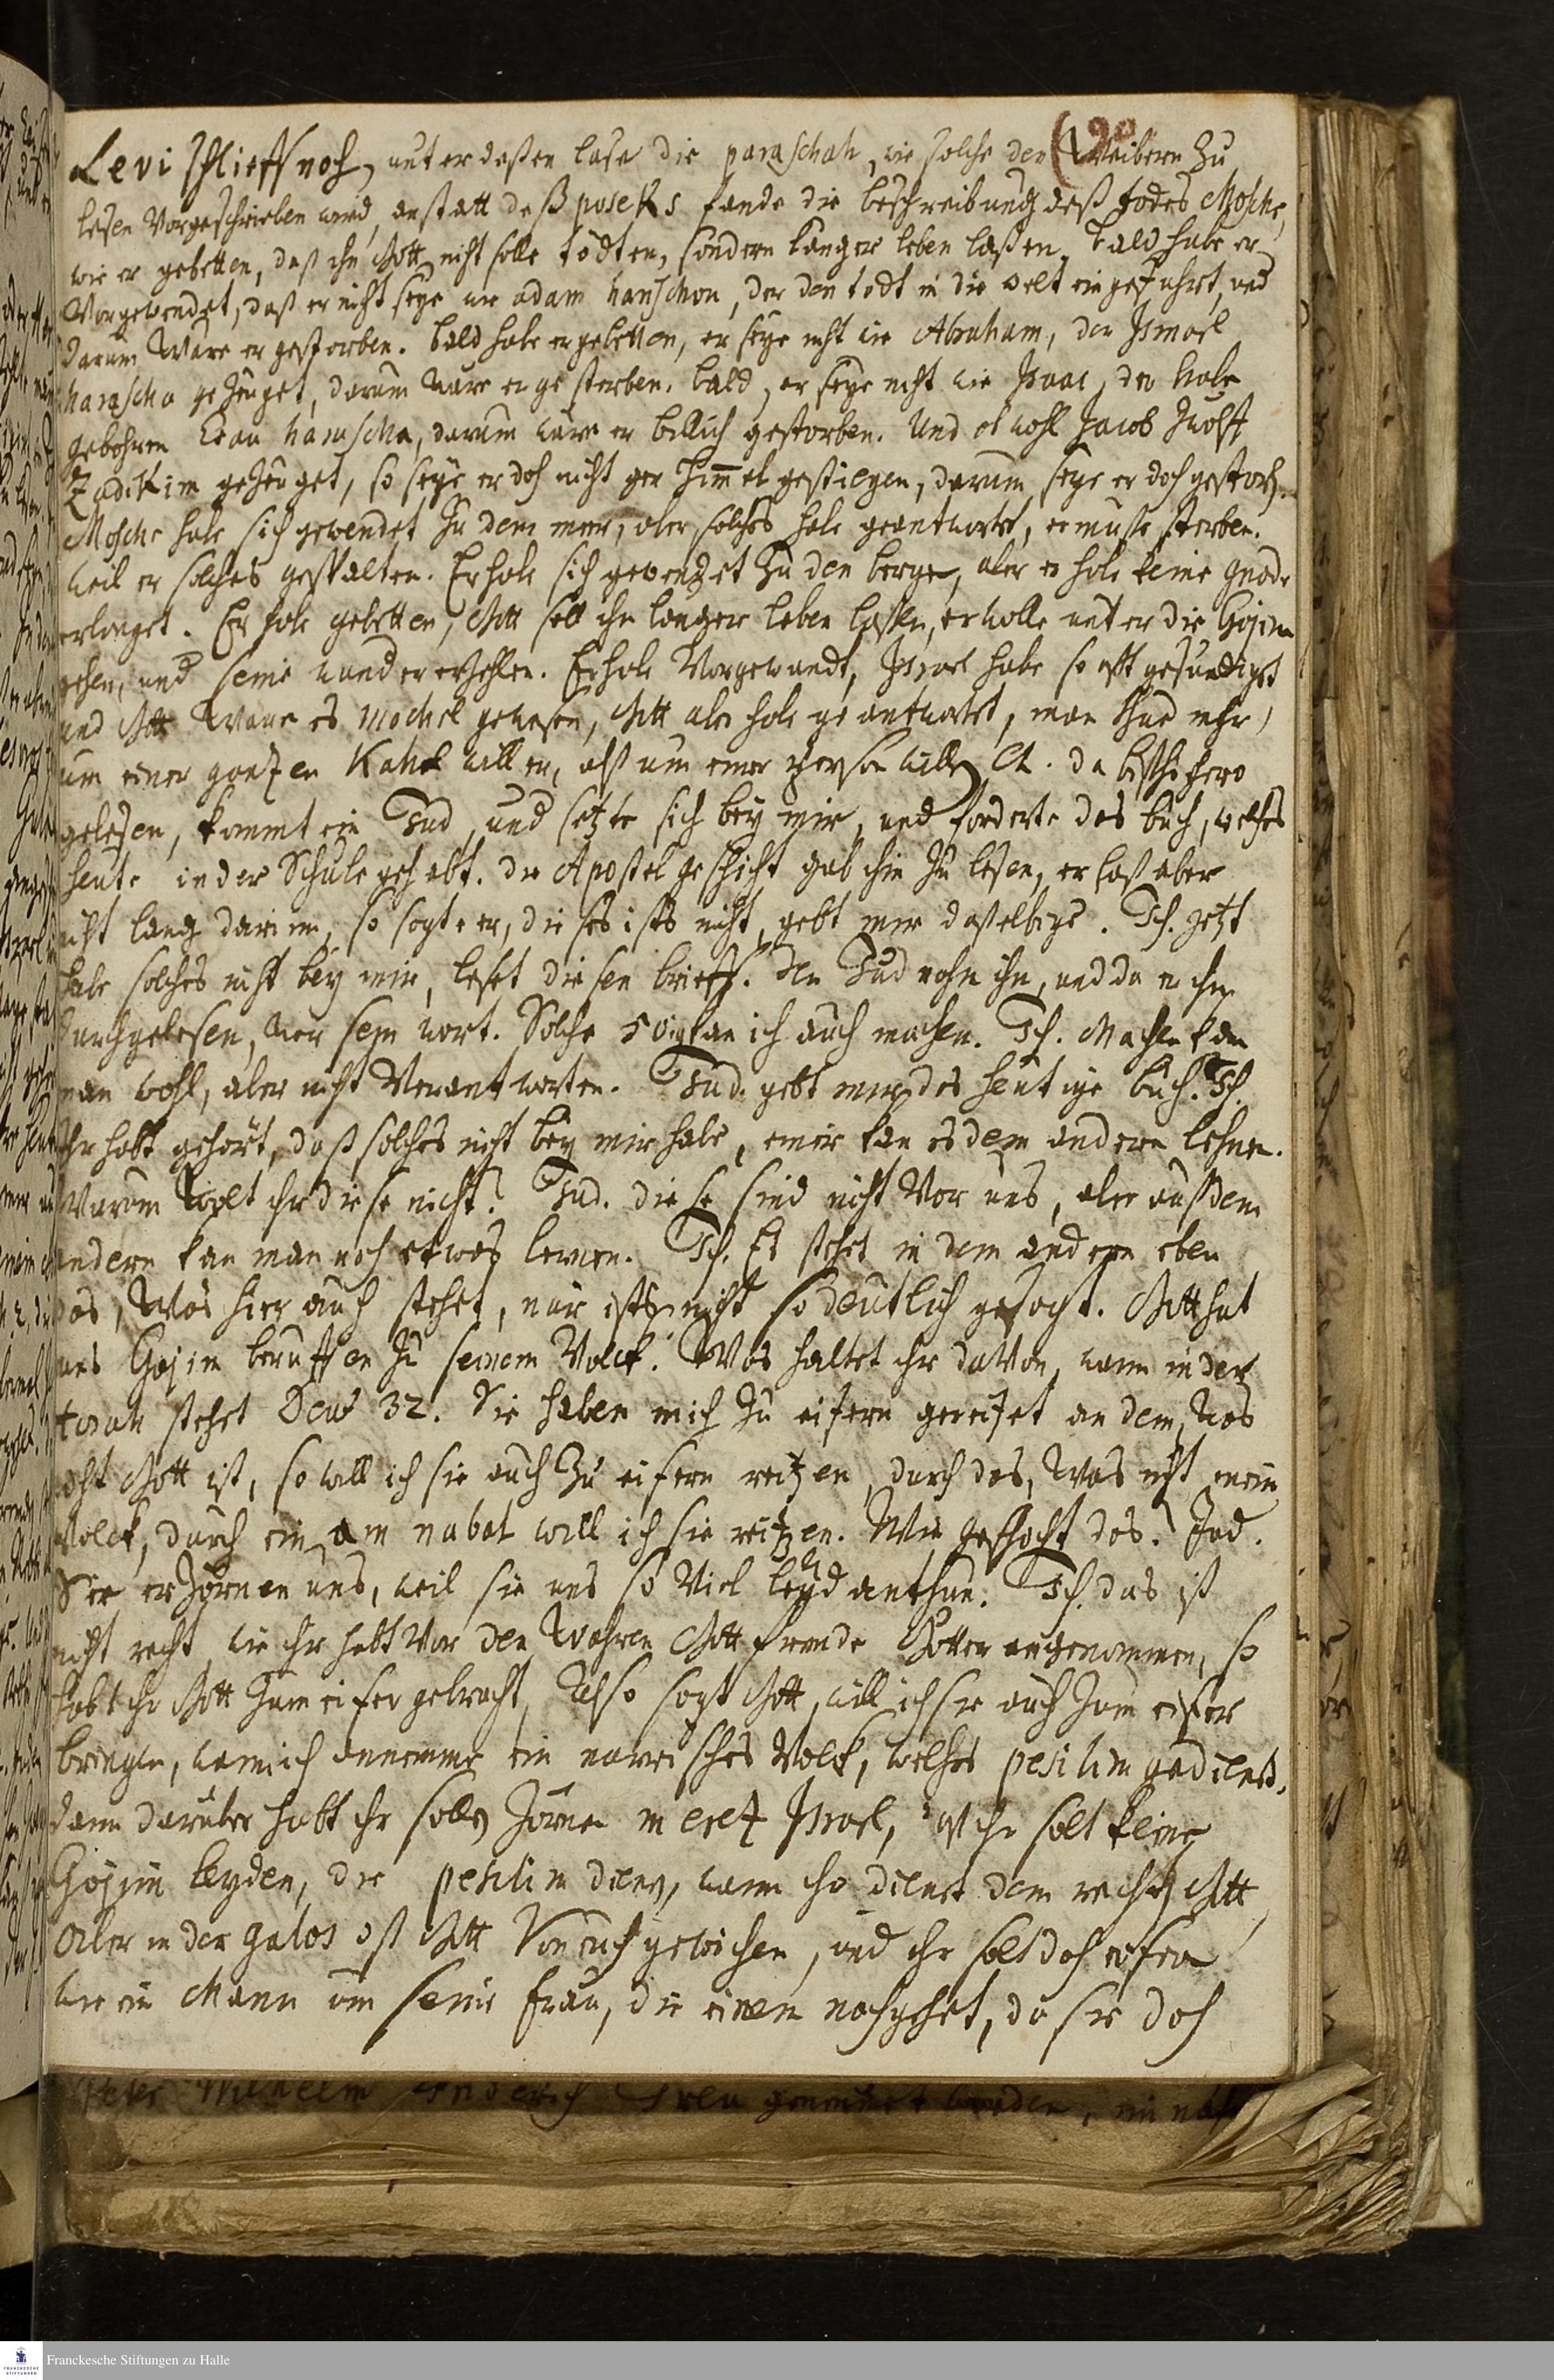 90
Levi schlieff noch, unterdeßen lase die paraschah, wie solche den Weibern zu
lesen Vorgeschrieben wird, anstatt deß poseks fande die beschreibung deß todes Mosche,
wie er gebetten, daß ihn Gott nicht solle tödten, sondern länger leben laßen, bald habe er
Vorgewendet, daß er nicht seye wie adam harischon, der den todt in die welt eingeführt, und
darum wäre er gestorben. bald habe er gebetten, er seye nicht wie Abraham, der Ismael
harascha gezeuget, darum wäre er gestorben. bald, er seye nicht wie Isaac, der habe
gebohren Esau harascha, darum wäre er billich gestorben. Und obwohl Jacob Zwölff
Zadikim gezeuget, so seye er doch nicht gen Him̄el gestiegen, darum seye er doch gestorb.
Mosche habe sich gewendet zu dem meer, aber solches habe geantwortet, er muße sterben.
weil er solches gespalten. Er habe sich gewendet zu den berge, aber er habe keine gnade
erlanget. Er habe gebetten, Gott soll ihn länger leben laßen, er wolle unter die Gojim
gehen, und seine wunder erzehlen. Er habe Vorgewandt, Israel habe so offt gesündiget
und Gott wäre es mochel gewesen, Gott aber habe geantwortet, man thue mehr
um einer gantzen Kahal willen, alß um einer person willen &. da bißhero
gelesen, kommt ein Jud, und setzte sich bey mir, und forderte das buch, welches
heute in der Schule gehabt. die Apostelgeschicht gab ihm zu lesen, er laß aber
nicht lang darinn, so sagte er, dieses ists nicht, gebt mir daßelbige. Ich. jetzt
habe solches nicht bey mir, leset diesen brieff. der Jud nahm ihn, und da er ihn
durchgelesen, war sein wort. Solche kan ich auch machen. Ich. Machen kan
man wohl, aber nicht Verantworten. Jud. gebt mir das heutige buch. Ich.
Ihr habt gehört, daß solches nicht bey mir habe, einer kan es dem andern lehnen.
Warum wolt ihr diese nicht? Jud. diese sind nicht Vor uns, aber auß dem
andern kan man noch etwas lernen. Ich. Es stehet in dem andern eben
das, Was hier auch stehet, nur ists nicht so deutlich gesagt. Gott hat
uns Gojim beruffen zu seinem Volck. Was haltet ihr davon, wann in der
torah stehet Deut 32. Sie haben mich zu eifern gereitzet an dem, was
nicht Gott ist, so will ich sie auch zu eifern reitzen, durch das, was nicht mein
Volck, durch ein am nabal will ich sie reitzen. Wie geschicht das? Jud.
Sie erzörnen uns, weil sie uns so Viel leyd anthun. Ich. das ist
nicht recht, wie ihr habt Vor den Wahren Gott fremde Götter angenommen, so
habt ihr Gott zum eifer gebracht, Also sagt Gott, will ich sie auch zum eifer
bringen, wann ich annemme ein narrisches Volck, welches pesilim gedienet,
dann darüber habt ihr sollen zörnen in eretz Israel, ihr solt keine
Gojim leyden, die pesilim dienen, wann ihr dienet dem rechten Gott
Aber in der galos ist Gott Von euch gewichen, und ihr solt doch eifern
wie ein Mann um seine frau, die einem nachgehet, da sie doch
Wilhelm genennet worden
Franckesche Stiftungen zu Halle